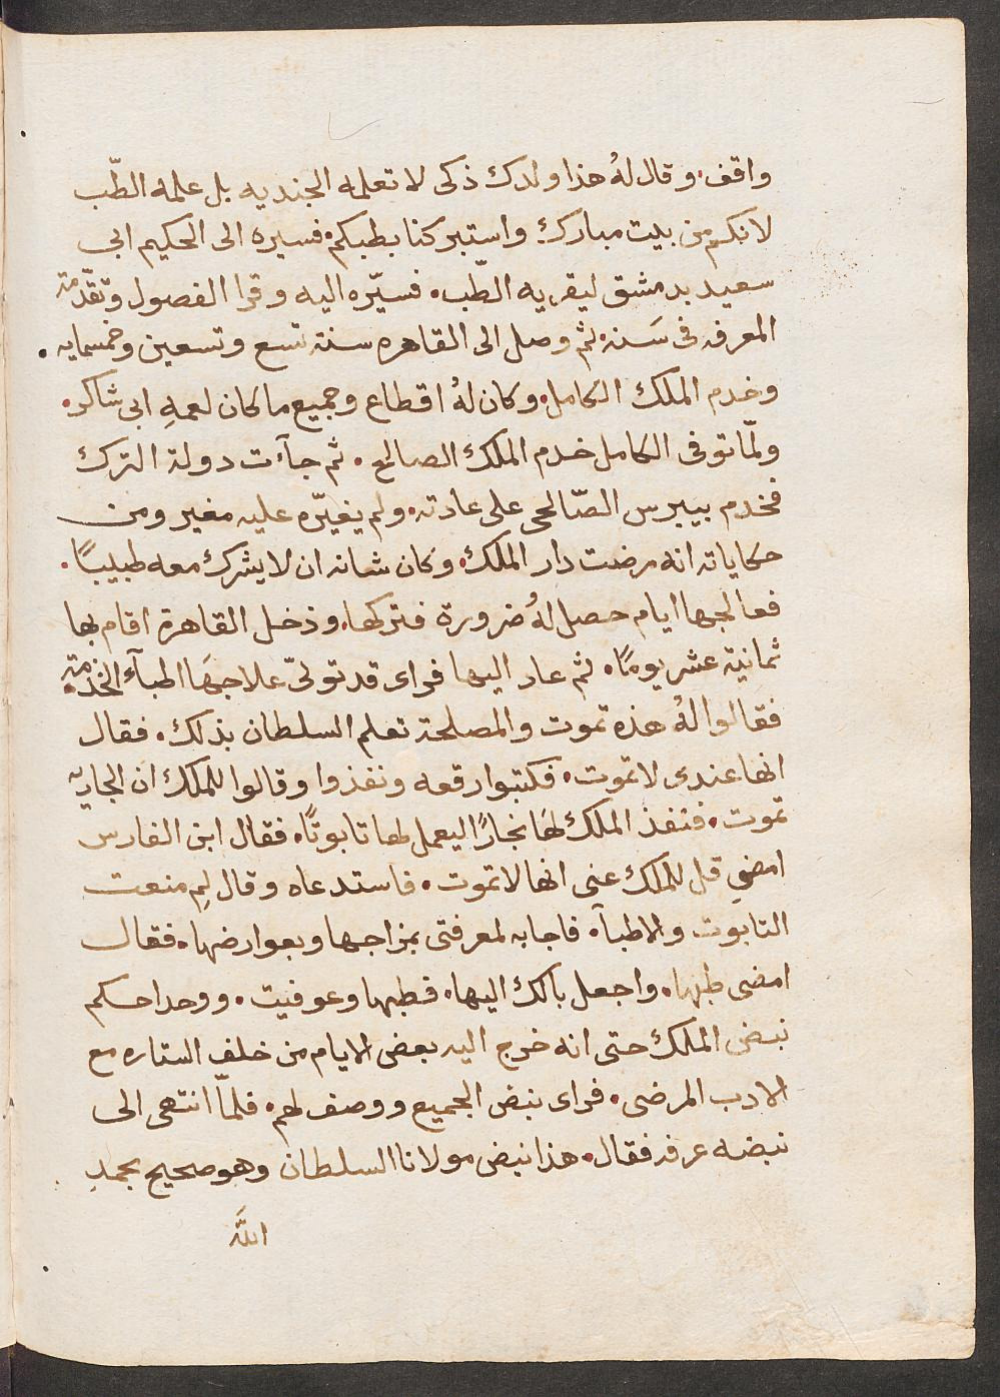 واقف. وقال لهُ هذا ولدك ذكى لا تعلمه الجنديه بل علمه الطّب
لانكم من بيت مبارك. واستبركنا بطبكم. فسيره الى الحكيم ابى
سعيد بدمشق ليقريه الطّب. فسيّره اليه وقرا الفصول وتقدّمة
المعرفه فى سَنة. ثم وصل الى القاهره سنة تسع وتسعين وخمسمايه.
وخدم الملك الكامل. وكان لهُ اقطاع وجميع ما كان لعمهِ ابى شاكر.
ولمّا توفى الكامل خدم الملك الصالح. ثم جآءت دولة الترك
فخدم بيبرس الصّالحى على عادته. ولم يغيّره عليه مغير ومن
حكاياته انه مرضت دار الملك. وكان شانه ان لا يشرك معه طبيبًا.
فعالجها ايام حصل لهُ ضرورة فتركها. ودخل القاهرة اقام بها
ثمانية عشر يومًا. ثم عاد اليها فراى قد تولىّ علاجهَا اطبآء الخدمة.
فقالوا لهُ هذه تموت والمصلحة تعلم السلطان بذلك. فقال
انها عندى لا تموت. فكتبوا رقعه ونفذوا وقالوا للملك ان الجاريه
تموت. فنفذ الملك لهَا نجارًا ليعمل لها تابوتًا. فقال ابن الفارس
امضي قل للملك عنى انها لا تموت. فاستدعاه وقال لِمِ منعت
التابوت والاطبآء. فاجابه لمعرفتى بمزاجها وبعوارضها. فقال
امضى طبها. واجعل بالك اليها. فطبها وعوفيت. ووحدا حكم
نبض الملك حتى انه خرج اليه بعض الايام من خلف الستاره مع
الادب المرضى. فراى نبض الجميع ووصف لهم. فلمّا انتهى الى
نبضه عرفه فقال. هذا نبض مولانا السلطان وهو صحيح بحمدِ
اللَّه